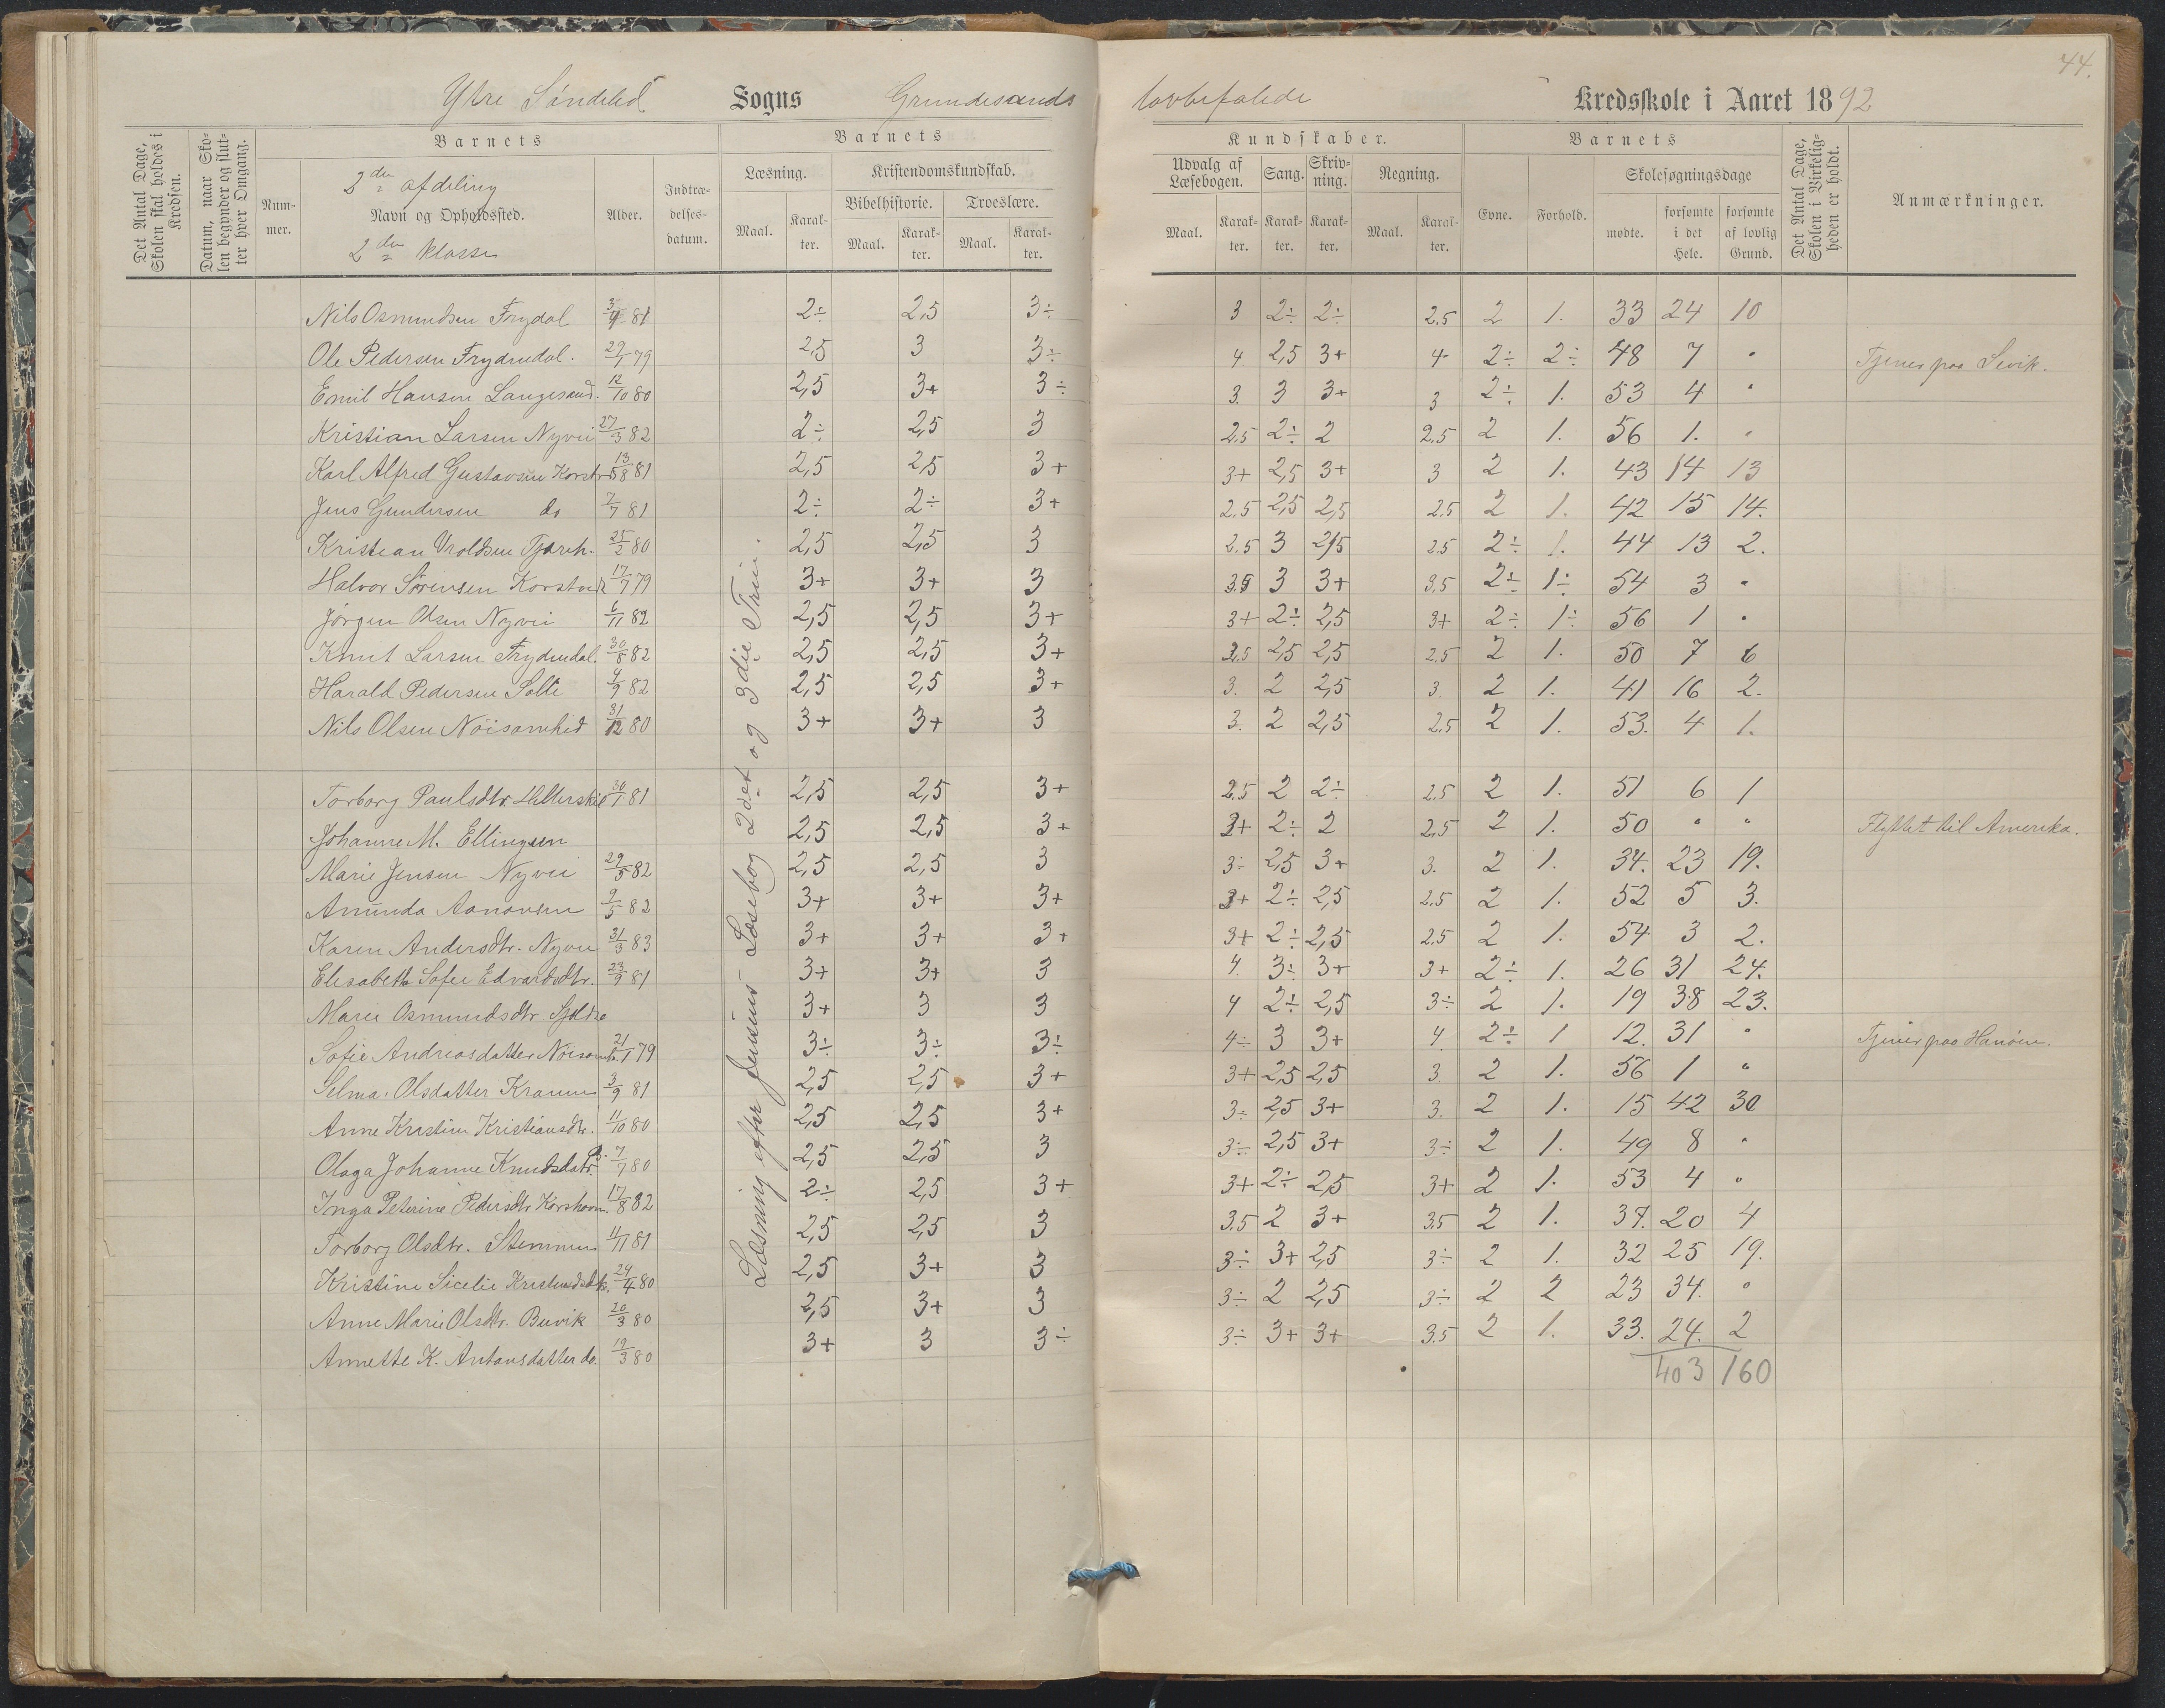 44.
Ytre Söndeled Sogns Grundesunds lovbefalede Kredsskole i Aaret 1892
Det Antal Dage, Skolen skal holdes i Kredsen.
Datum, naar Skolen begynder og slutter hver Omgang.
Nummer.
Barnets
3die afdeling
Navn og Opholdssted.
2den Klasse
Alder.
Indtrædelsesdatum.
Barnets
Læsning.
Maal.
Karakter.
Kristendomskundskab.
Bibelhistorie.
Maal.
Karakter.
Troeslære.
Maal.
Karakter.
Kundskaber.
Udvalg af Læsebogen.
Maal.
Karakter.
Sang.
Karakter.
Skrivning.
Karakter.
Regning.
Maal.
Karakter.
Barnets
Evne.
Forhold.
Skolesøgningsdage
mødte.
forsømte i det Hele.
forsømte af lovlig Grund.
Det Antal Dage, Skolen i Virkeligheden er holdt.
Anmærkninger.
Læsning efter Jensens Læsebog 2det og 3die Trin.
Nils Osmundsen Frydal 3/9 81 2÷ 2,5 3÷ 3 2÷ 2÷ 2.5 2 1. 33 24 10
Ole Pedersen Frydendal. 29/1 79 2,5 3 3÷ 4 2,5 3+ 4 2÷ 2÷ 48 7 " Tjener paa Sivik.
Emil Hansen Langesand. 12/10 80 2,5 3+ 3÷ 3. 3 3+ 3 2÷ 1. 53 4 "
Kristian Larsen Nyvei 27/3 82 2÷ 2,5 3 2.5 2÷ 2 2.5 2 1. 56 1. "
Karl Alfred Gustavsen Korstv 13/8 81 2,5 2,5 3+ 3+ 2,5 3+ 3 2 1. 43 14 13
Jens Gundersen do 7/7 81 2÷ 2÷ 3+ 2.5 2,5 2,5 2.5 2 1. 42 15 14.
Kristian Vroldsen Tjærh. 25/2 80 2,5 2,5 3 2.5 3 2,5 2.5 2÷ 1. 44 13 2.
Halvor Sørensen Korstvedt 17/7 79 3+ 3+ 3 3.5 3 3+ 3,5 2÷ 1÷ 54 3 "
Jörgen Olsen Nyvei 6/11 82 2,5 2,5 3+ 3+ 2÷ 2,5 3+ 2÷ 1÷ 56 1 "
Knut Larsen Frydendal. 30/8 82 2,5 2,5 3+ 2.5 2,5 2,5 2.5 2 1. 50 7 6
Harald Pedersen Solli 4/9 82 2,5 2,5 3+ 3. 2 2,5 3. 2 1. 41 16 2.
Nils Olsen Nöisomhed 31/12 80 3+ 3+ 3 3. 2 2,5 2,5 2 1. 53. 4 1.
Torborg Paulsdtr. Hillerskil 30/1 81 2,5 2,5 3+ 2.5 2 2÷ 2.5 2 1. 51 6 1
Johanne M. Ellingsen 2,5 2,5 3+ 3+ 2÷ 2 2,5 2 1. 50 " " Flyttet til Amerika.
Marie Jensen Nyvei 29/5 82 2,5 2,5 3 3÷ 2,5 3+ 3. 2 1. 34. 23 19.
Amunda Aanonsen 9/5 82 3+ 3+ 3+ 3+ 2÷ 2,5 2.5 2 1. 52 5 3.
Karen Andersdtr. Nyvei 31/3 83 3+ 3+ 3+ 3+ 2÷ 2,5 2.5 2 1. 54 3 2.
Elisabeth Sofie Edvardsdtr. 23/9 81 3+ 3+ 3 4. 3÷ 3+ 3+ 2÷ 1. 26 31 24.
Marie Osmundsdtr. 3+ 3 3 4 2÷ 2,5 3÷ 2 1. 19 38 23.
Sofie Andreasdatter Nöisomh. 21/1 79 3÷ 3÷ 3÷ 4÷ 3 3+ 4. 2÷ 1 12. 31 " Tjener paa Hanöen.
Selma Olsdatter Kranen 3/9 81 2,5 2,5 3+ 3+ 2,5 2,5 3 2 1. 56 1 "
Anne Kristine Kristiansdtr. 11/10 80 2,5 2,5 3+ 3÷ 2,5 3+ 3. 2 1. 15 42 30
Olaga Johanne Knudsdatr. 7/7 80 2,5 2,5 3 3÷ 2,5 3+ 3÷ 2 1. 49 8 "
Inga Peterine Pedersdtr Korshavn. 17/8 82 2÷ 2,5 3+ 3+ 2÷ 2,5 3+ 2 1. 53 4 "
Torborg Olsdtr. Stemmen 11/11 81 2,5 2,5 3 3.5 2 3+ 3.5 2 1. 37. 20 4
Kristine Sicelie Kristensdtr. 24/4 80 2,5 3+ 3 3÷ 3+ 2,5 3÷ 2 1. 32 25 19.
Anne Marie Olsdtr. Buvik 20/3 80 2,5 3+ 3 3÷ 2 2,5 3÷ 2 2 23 34. "
Annette K. Antonsdatter do. 19/3 80 3+ 3 3÷ 3÷ 3+ 3+ 3.5 2 1. 33. 24. 2
403 160